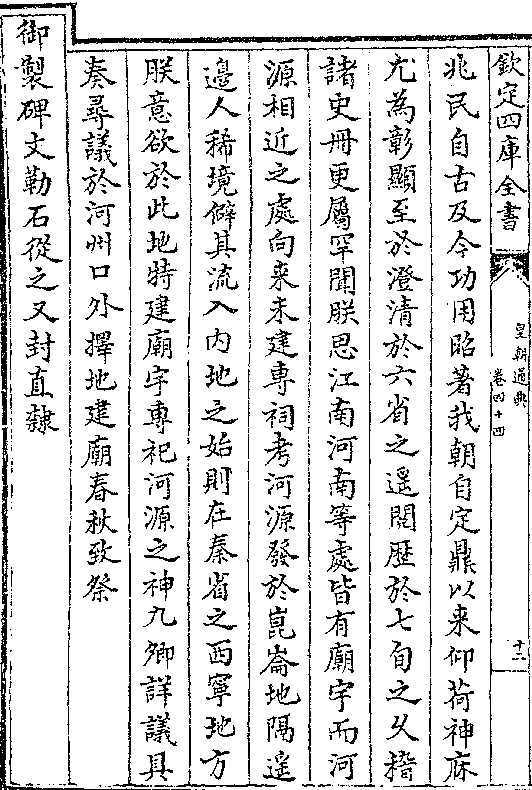 欽定四庫全書
皇朝通典
卷四十四
十二
兆民自古及今功用昭著我朝自定鼎以来仰荷神庥
尤為彰顯至於澄清於六省之遥閱歷於七旬之乆稽
諸史冊更屬罕聞朕思江南河南等處皆有廟宇而河
源相近之處向来未建専祠考河源發於崑崙地隔遥
邉人稀境僻其流入内地之始則在秦省之西寧地方
朕意欲於此地特建廟宇専祀河源之神九卿詳議具
奏尋議於河州口外擇地建廟春秋致祭
御製碑文勒石從之又封直隸